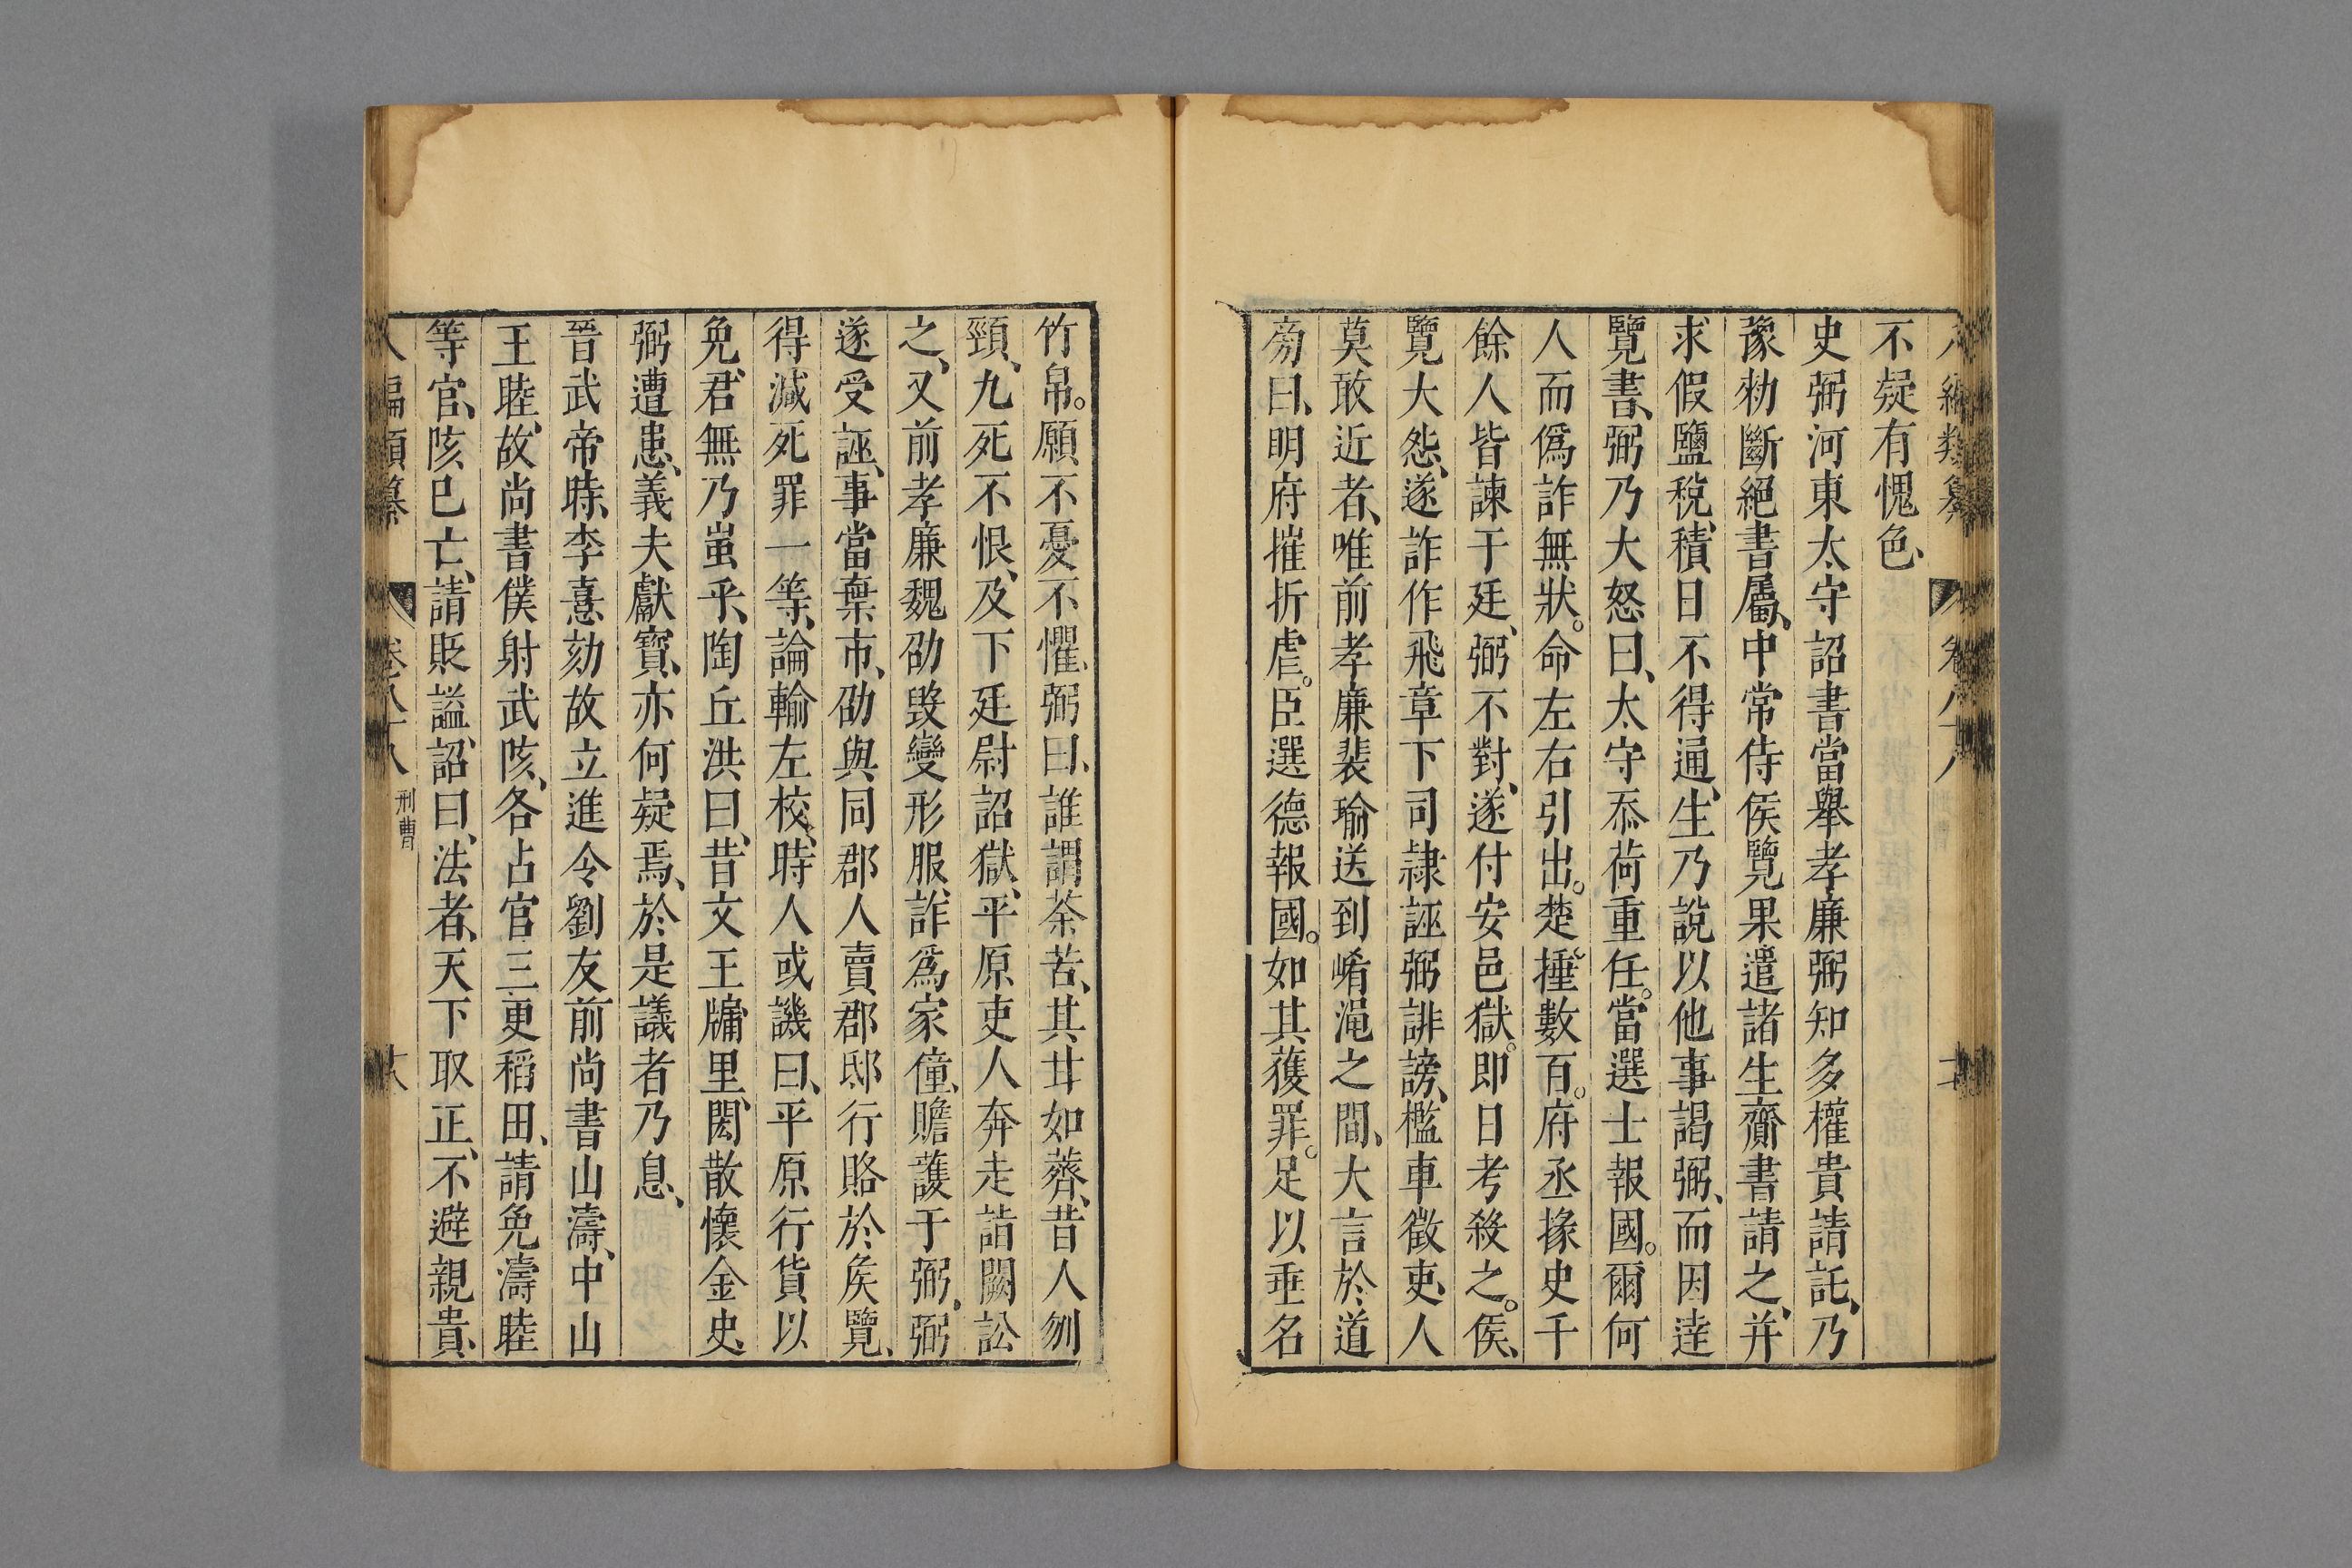 不疑有愧色、
史弼河東太守詔書當舉孝廉弼知多權貴請託、乃
豫勑斷絕書屬、中常侍侯覽果遣諸生齎書請之、并
求假鹽稅、積日不得通、生乃說以他事謁弼、而因達
覽書、弼乃大怒曰、太守忝荷重任。當選士報國。爾何
人而僞詐無狀。命左右引出。楚捶數百。府丞掾史千
餘人皆諫于廷、弼不對、遂付安邑獄。即日考殺之。侯、
覽大怨、遂詐作飛章下司隸誣弼誹謗、檻車徵吏人
莫敢近者、唯前孝廉裴瑜送到崤澠之間、大言於道
旁曰、明府摧折虐。臣選德報國。如其獲罪。足以垂名
竹帛。願不憂不懼、弼曰、誰謂荼苦、其甘如薺、昔人刎
頸、九死不恨、及下廷尉詔獄、平原吏人奔走詣闕訟
之、又前孝廉魏劭毀變形服、詐爲家僮、瞻護于弼、弼
遂受誣、事當棄市、劭與同郡人賣郡邸行賂於侯覽、
得減死罪一等、論輸左校、時人或譏曰、平原行貨以
免君、無乃蚩乎、陶丘洪曰、昔文王牖里、閎散懷金史、
弼遭患、義夫獻寶、亦何疑焉、於是議者乃息、
晉武帝時、李憙劾故立進令劉友前尚書山濤、中山
王睦、故尚書僕射武陔、各占官三更稻田、請免濤睦
等官、陔巳亡、請貶謚、詔曰、法者、天下取正、不避親貴、
編類纂 卷八十八 刑曹 十八